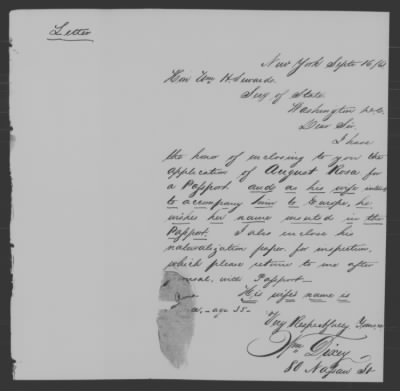 Letter
New York Septr 16/61
Hon Wm H. Seward.
Secy of State.
Washington D.C.
Dear Sir.
I have
the honor of inclosing to you the
application of August Rosa for
a Passport. and as his wife intends
to accompany him to Europe, he
wishes her name inserted in the
Passport. I also inclose his
naturalization paper, for inspection,
which please return to me after
with Passport—
His wife's name is
age 35—
Very Respectfully Yours
Wm Dixey
80 Nassau St